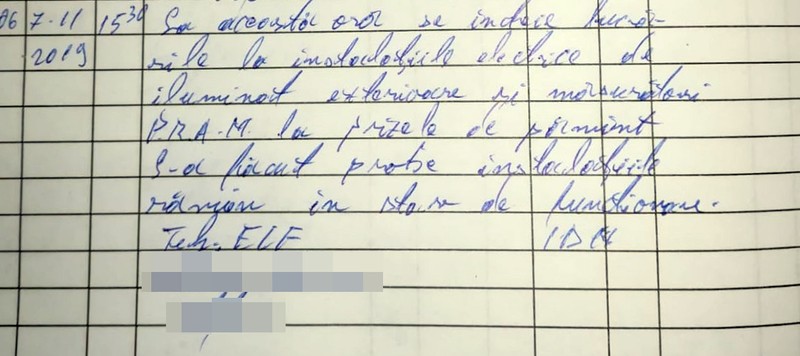 06 7-11 15³⁰ La această oră se încheie lucră-
2019 rile la instalațiile electrice de
iluminat exterioare și măsurători
P.R.A.M. la prizele de pământ
S-a făcut probe instalațiile
rămân în stare de funcționare.
Teh. ELF